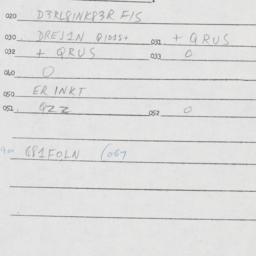 020 D3RL8INK83R FIS
030 DRE51N Q1015+ 031 + QRUS
032 + QRUS 033 0
040 0
050 ER INKT
051 QZZ 052 0
681FOLN (067